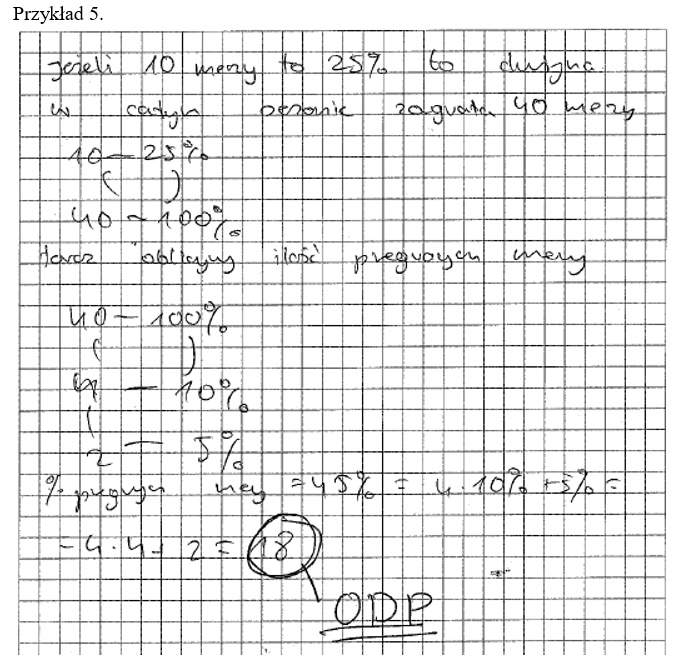 Przykład 5.
Jeżeli 10 meczy to 25% to drużyna
w całym sezonie zagrała 40 meczy
10 – 25%
40 – 100%
teraz obliczmy ilość przegranych meczy
40 – 100%
4 – 10%
2 – 5%
% przegrych meczy = 45% = 4 · 10% + 5% =
= 4 · 4 + 2 = 18
ODP